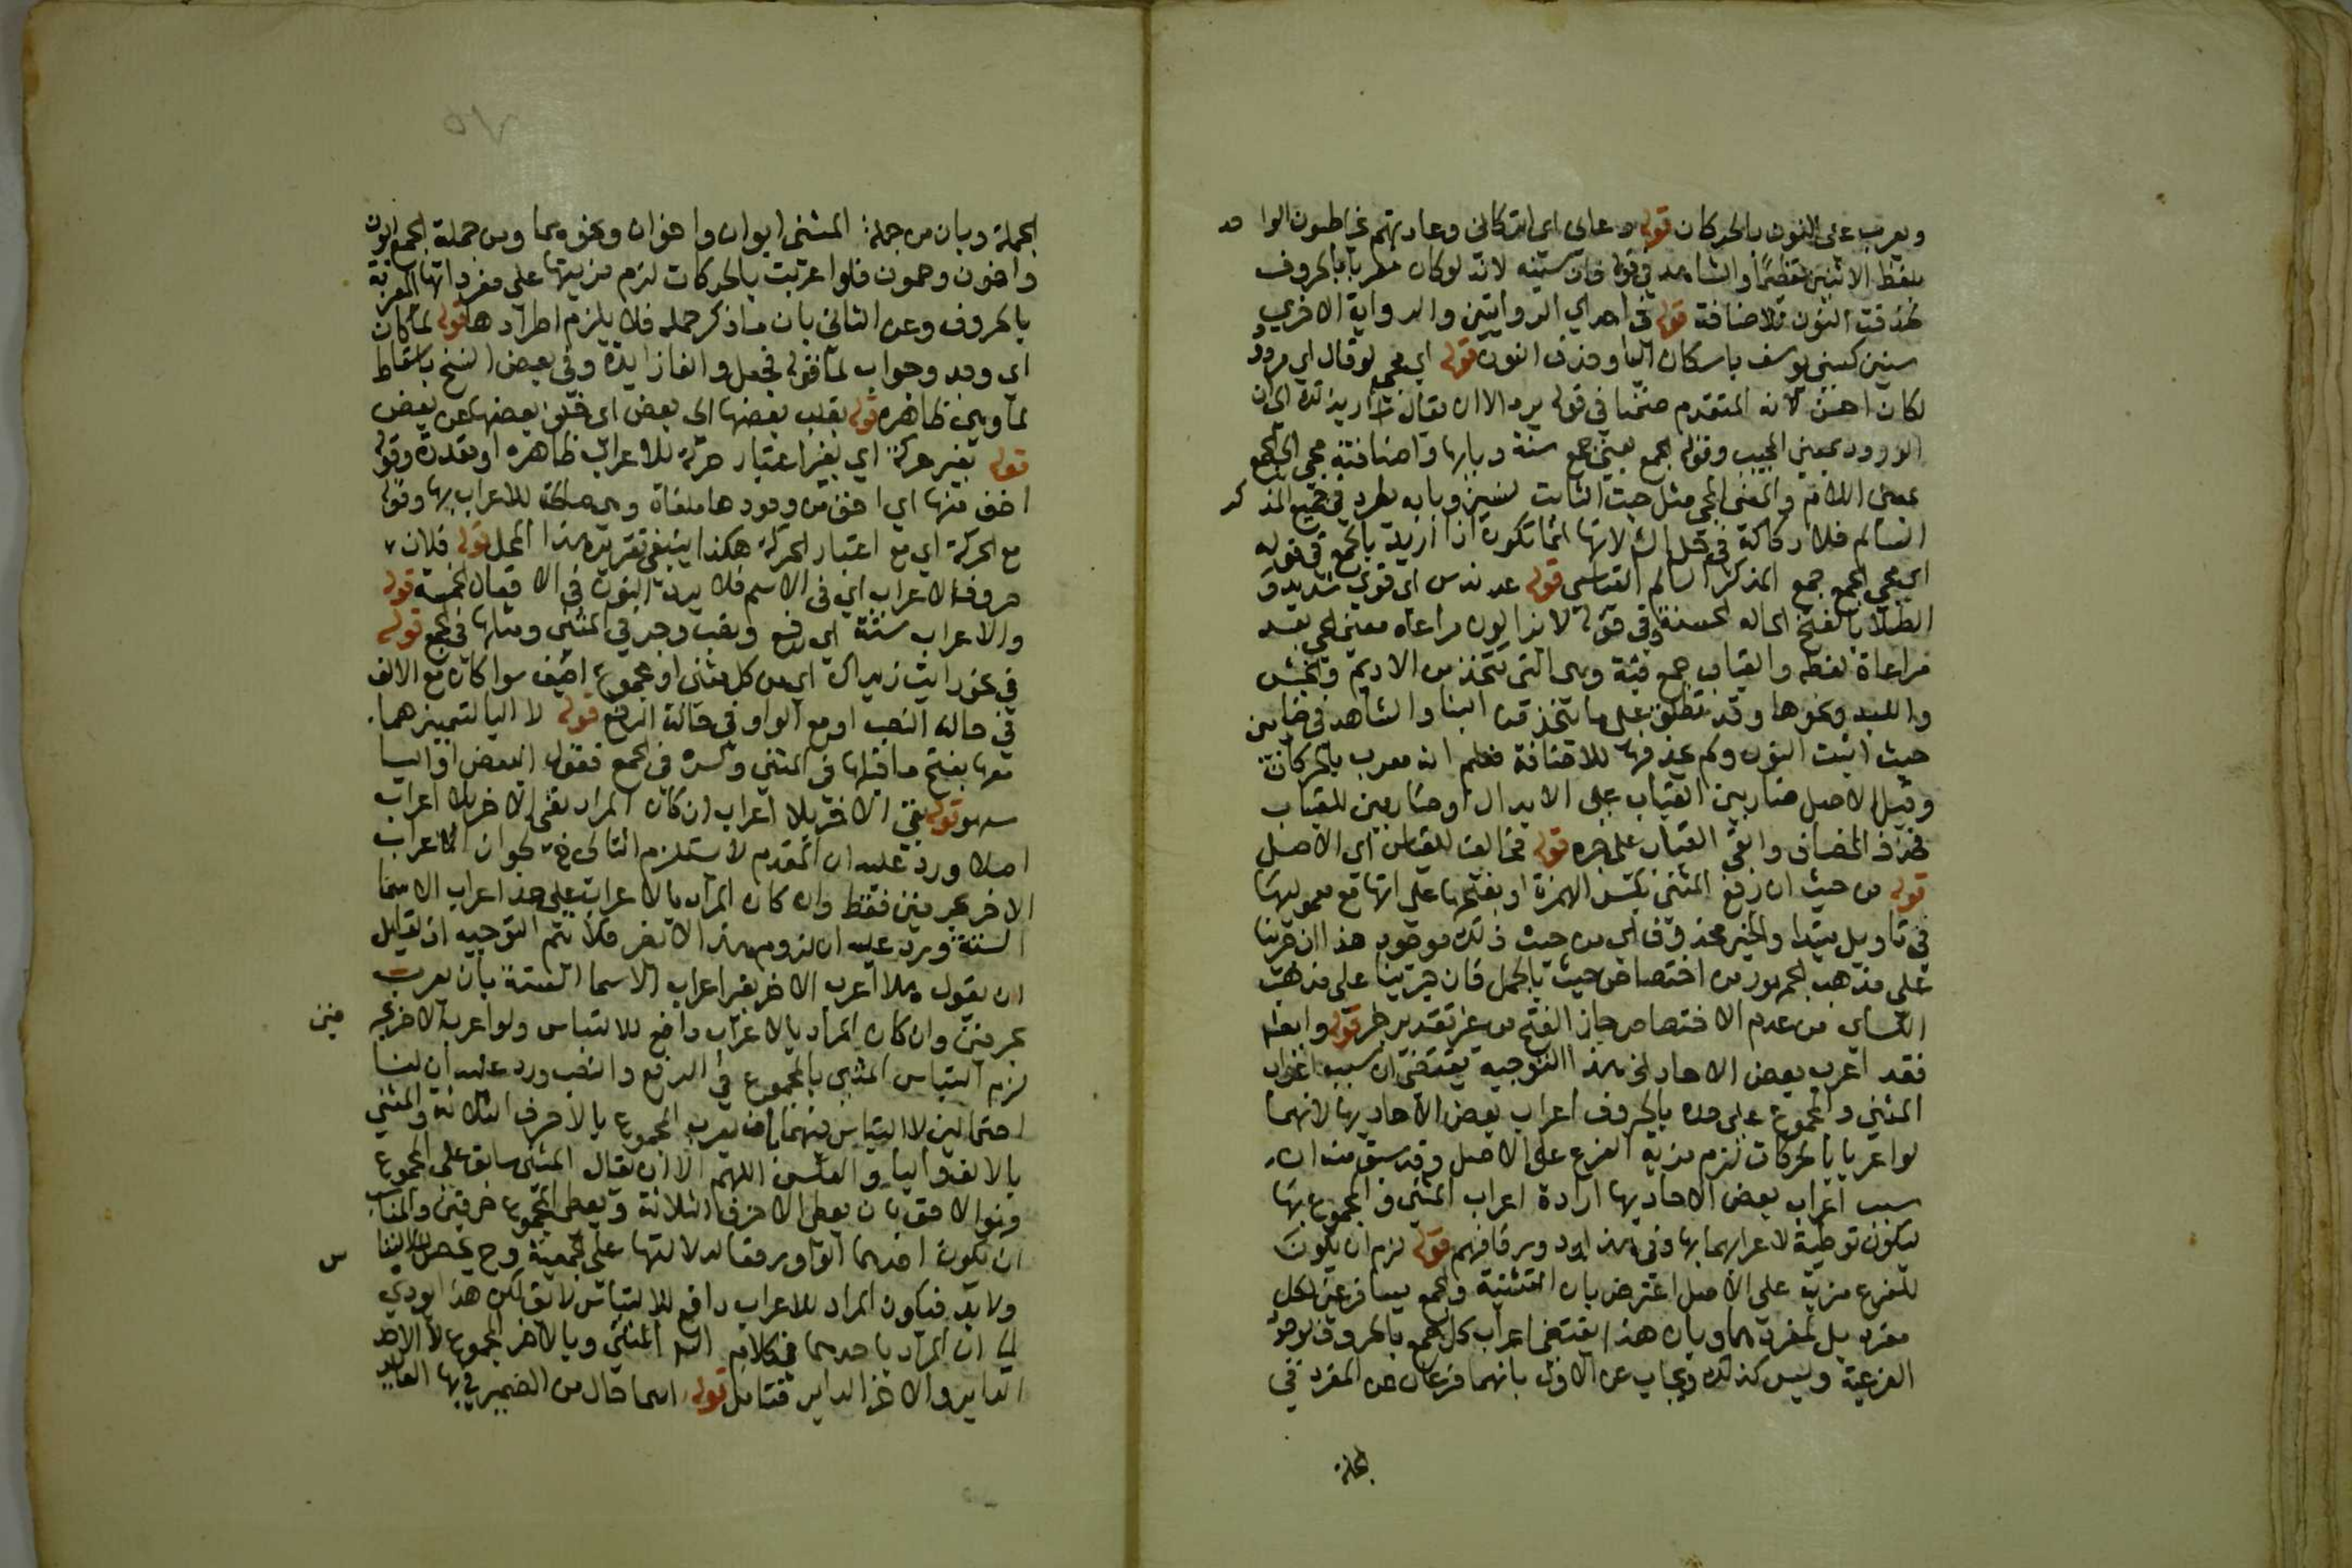 ويعرب على النون بالحركات قوله دعاني اي اتركاني وعادتهم يخاطبون الوا حد
بلفظ الاثنين تعظيما والشاهد في قوله فان سنينه لانه لو كان معربا بالحروف
لحذفت النون للاضافة قوله في احدي الروايتين والرواية الاخري
سنين كسني يوسف باسكان اليا وحذف النون قوله اي مجي لو قال اي ورود
لكان احسن لانه المتقدم ضمنا في قوله يرد الا ان يقال اشار بذلك الى ان
الورود بمعني المجيب وقوله الجمع يعني جمع سنة وبابها واضافة مجي الى الجمع
بمعنى اللام والمعنى المجي مثل حيث الثابت لسنين وبابه يطرد في جميع المذ كر
السالم فلا ركاكة في حل الش لانها انما تكون اذا اريد بالجمع في قوله
اي مجي الجمع جمع المذكر السالم القياسي قوله عرندس اي قوي شديد و
الطلا بالفتح الحالة الحسنة وفي قوله لا يزالون مراعاة معنى حي بعد
مراعاة لفظه والقباب جمع قبة وهي التي تتخذ من الاديم والخشب
واللبد ونحوها وقد تطلق على ما يتخذ من البنا والشاهد في ضاربين
حيث اثبت النون ولم يحذفها للاضافة فعلم انه معرب بالحركات
وقيل الاصل ضاربين القباب على الابدال او ضاربين للقباب
فحذف المضاف وابقي القباب على جره قوله مخالف للقياس اي الاصل
قوله من حيث ان رفع المثنى بكسر الهمزة او بفتحها على انها مع معموليها
في تاويل مبتدا والخبر محذوف اي من حيث ذلك موجود هذا ان جرينا
على مذهب الجمهور من اختصاص حيث بالجمل فان جرينا على مذهب
الكساي من عدم الاختصاص جاز الفتح من غير تقدير خبر قوله وايضا
فقد اعرب بعض الاحاد الخ هذا التوجيه يقتضي ان سبب اعراب
المثنى والمجموع على حده بالحروف اعراب بعض الاحاد بها لانهما
لو اعربا بالحركات لزم مزية الفرع على الاصل وقد سبق منه ان
سبب اعراب بعض الاحاد بها ارادة اعراب المثنى والمجموع بها
ليكون توطية لاعرابهما بها وفي هذا دور فافهم قوله لزم ان يكون
للفرع مزية على الاصل اعترض بان التثنية والجمع ليسا فرعين لكل
مفرد بل لمفردهما وبان هذا يقتضي اعراب كل جمع بالحروف لوجود
الفرعية وليس كذلك ويجاب عن الاول بانهما فرعان عن المفرد في
الجملة
٧٥
الجملة وبان من جملة المثنى ابوان واخوان ونحوهما ومن جملة الجمع ابون
واخون وحمون فلو اعربت بالحركات لزم مزيتها على مفرداتها المعربة
بالحروف وعن الثاني بان ما ذكر حكمه فلا يلزم اطرادها قوله لما كان
اي وجد وجواب لما قوله فجعل والفا زايدة وفي بعض النسخ باسقاط
لما وهي ظاهره قوله بقلب بعضها الى بعض اي خلف بعضها عن بعض
قوله بغير حركة اي بغير اعتبار حركة للاعراب ظاهره او مقدرة وقوله
اخف منها اي اخف من وجودها ملغاة وهي صالحة للاعراب بها وقوله
مع الحركة اي مع اعتبار الحركة هكذا ينبغي تقرير هذا المحل قوله فلان
حروف الاعراب اي في الاسم فلا يرد النون في الافعال الخمسة قوله
والاعراب ستة اي رفع ونصب وجر في المثنى ومثلها في الجمع قوله
في نحو رايت زيداك اي من كل مثنى او مجموع اضيف سوا كان مع الالف
في حالة النصب او مع الواو في حالة الرفع قوله لا اليا لتميزهما
معها بفتح ما قبلها في المثنى وكسره في الجمع فقول البعض او اليا
سهو قوله بقي الاخر بلا اعراب ان كان المراد بقي الاخر بلا اعراب
اصلا ورد عليه ان المقدم لا يستلزم التالي ح لجواز الاعراب
الاخر بحرفين فقط وان كان المراد بالاعراب على حد اعراب الاسما
الستة ورد عليه ان لزوم هذا لا يضر فلا يتم التوجيه اذ لقايل
ان يقول هلا اعرب الاخر بغير اعراب الاسما الستة بان يعرب
بحرفين وان كان المراد بالاعراب دافع للالتباس ولو اعرب الاخر بحر فين
لزم التباس المثنى بالمجموع في الرفع والنصب ورد عليه ان لنا
احتمالين لا التباس فيهما بان يعرب المجموع بالاحرف الثلاثة والمثني
بالالف واليا والعكس اللهم الا ان يقال المثنى سابق على المجموع
فهو الاحق بان يعطى الاحرف الثلاثة ويعطى المجموع حرفين والمناسب
ان يكون احدهما الواو رفعا لدلالتها على الجمعية وح يحصل الالتبا س
ولا بد فيكون المراد للاعراب دافع للالتباس لايق لكن هذا يودي
الى ان المراد باحدهما في كلام الش المثنى وبالاخر المجموع لا الاحد
الداير والاخر الداير فتامل قوله اسما حال من الضمير في بها العايد